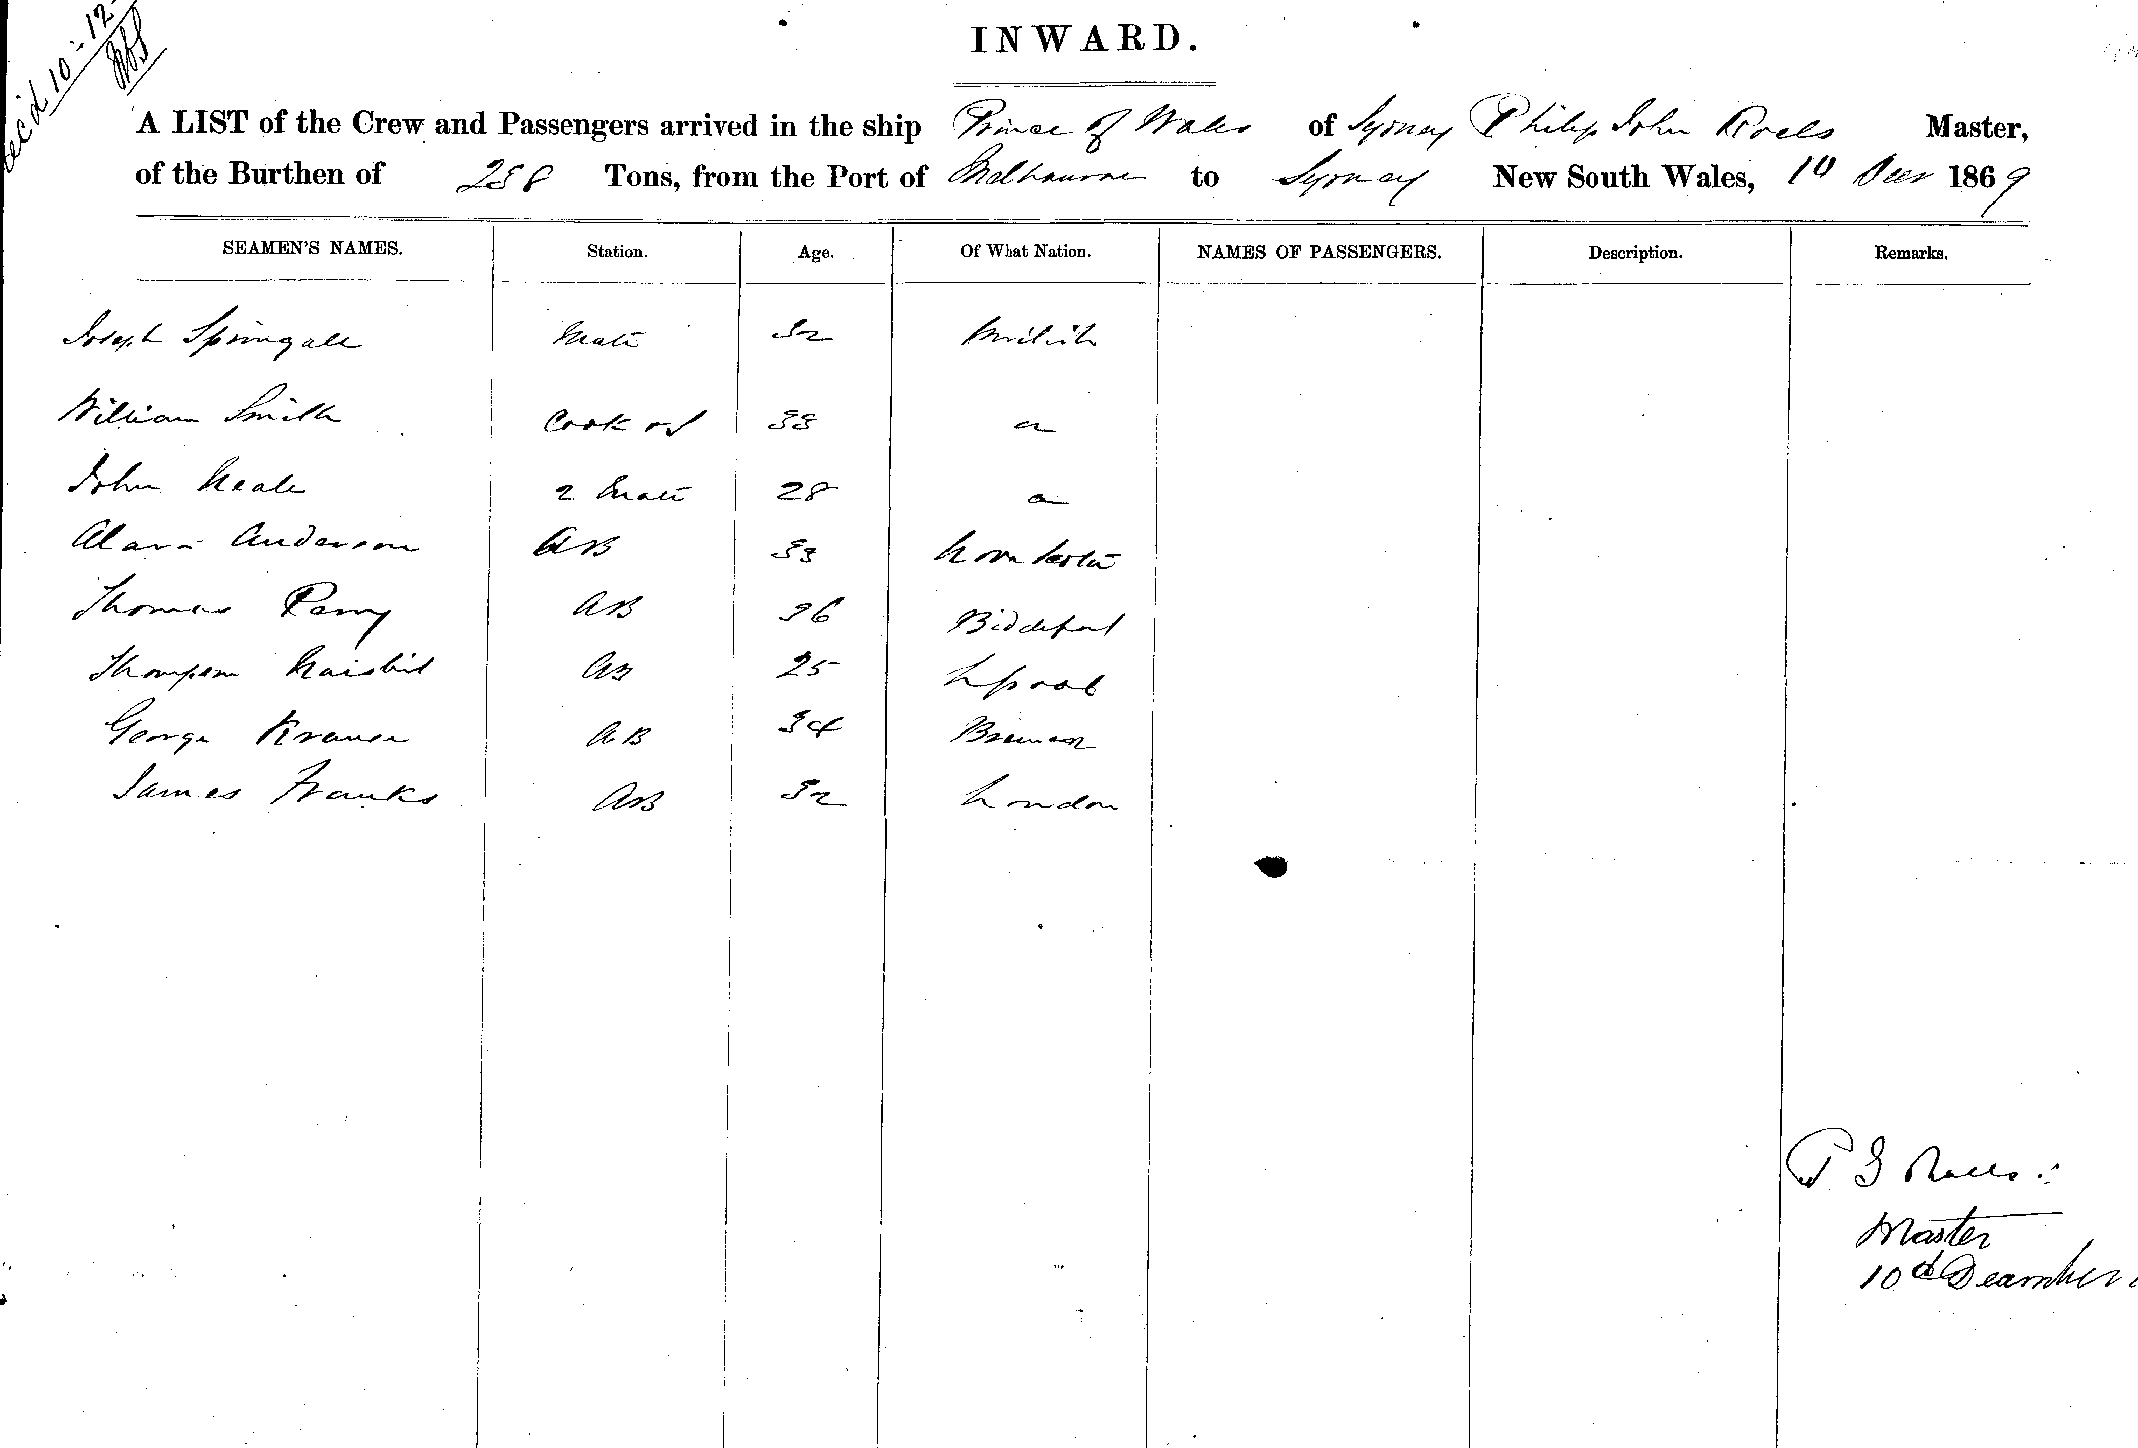 INWARD.
A LIST of the Crew and Passengers arrived in the ship Prince of Wales of Sydney Philip John Master,
of the Burthen of 258 Tons, from the Port of Melbourne to Sydney New South Wales, 10 Decr 1869
SEAMEN'S NAMES. Station. Age. Of What Nation. NAMES OF PASSENGERS. Description. Remarks.
Joseph Springall Mate 32 British
William Smith Cook 33
John Neale 2 Mate 28
Anderson AB 33
Thomas Parry AB 36 Biddeford
Thompson Naisbit AB 25 Lpool
George Krause AB 34 Bremen
James Franks AB 32 London
P J
Master
10th December